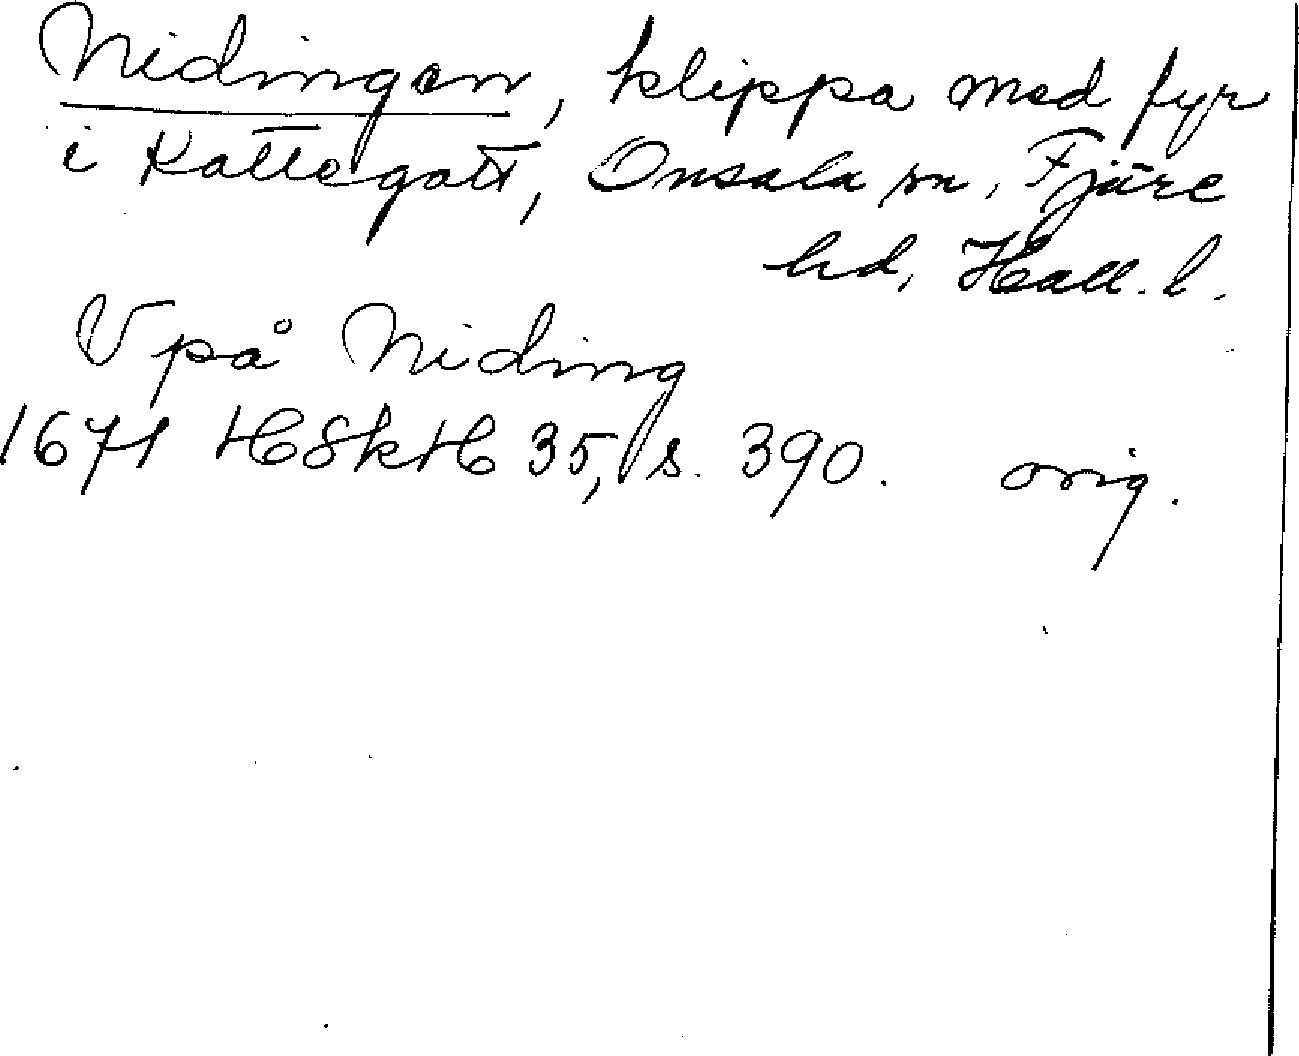 Nidingen, klippa med fyr
i Kattegatt, Onsala sn, Fjäre
hd, Hall. l.
V på Niding
1671 HSkH 35, s. 390. orig.